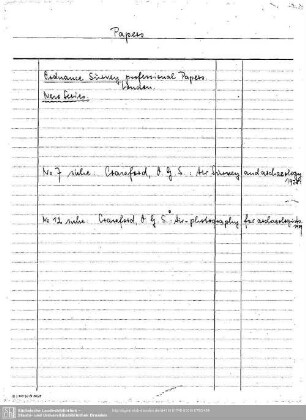 Papers
Ordnance Survey professional Papers.
London.
New Series.
No 7 siehe: Crawford, O. G. S.: Air Survey and archaeology
1928.
No 12 siehe: Crawford, O. G. S.: Air-photography for archaeologists
1929
Sächsische Landesbibliothek -
Staats- und Universitätsbibliothek Dresden